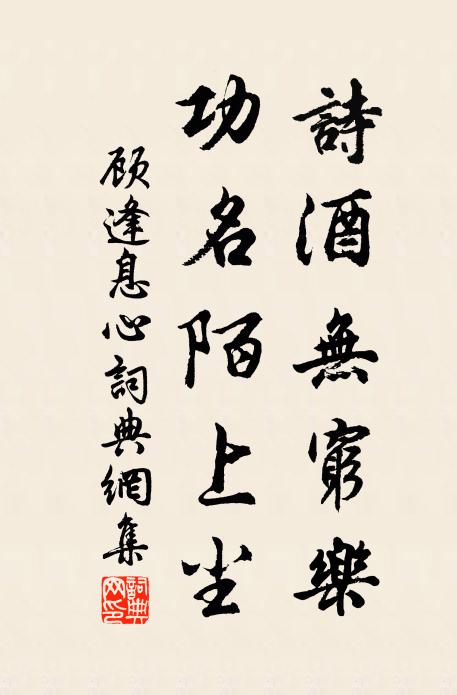 詩酒無窮樂
功名陌上尘
顾逢息心詞典網集
詞典网印